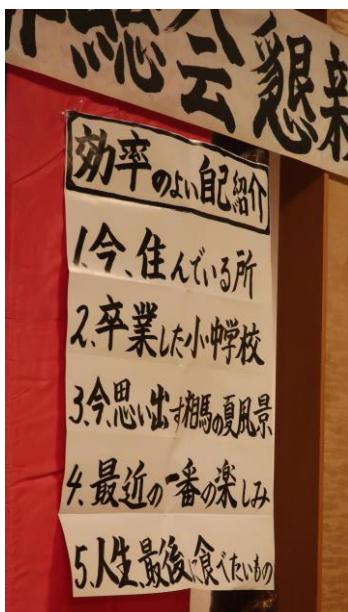 総会懇親
効率のよい自己紹介
1.今、住んでいる所
2.卒業した小中学校
3.今、思い出す相馬の夏風景
4.最近の一番の楽しみ
5.人生、最後に食べたいもの